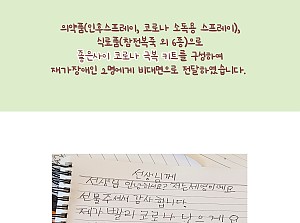 의약품(인후스프레이, 코로나 소독용 스프레이),
식료품(참전복죽 외 6종)으로
좋은사이 코로나 극복 키트를 구성하여
재가장애인 2명에게 비대면으로 전달하였습니다.
선생님께
선생님 안녕하세요? 저는세린이에요
선물주셔서 감사합니다.
제가 빨리 코로나 낳으게요